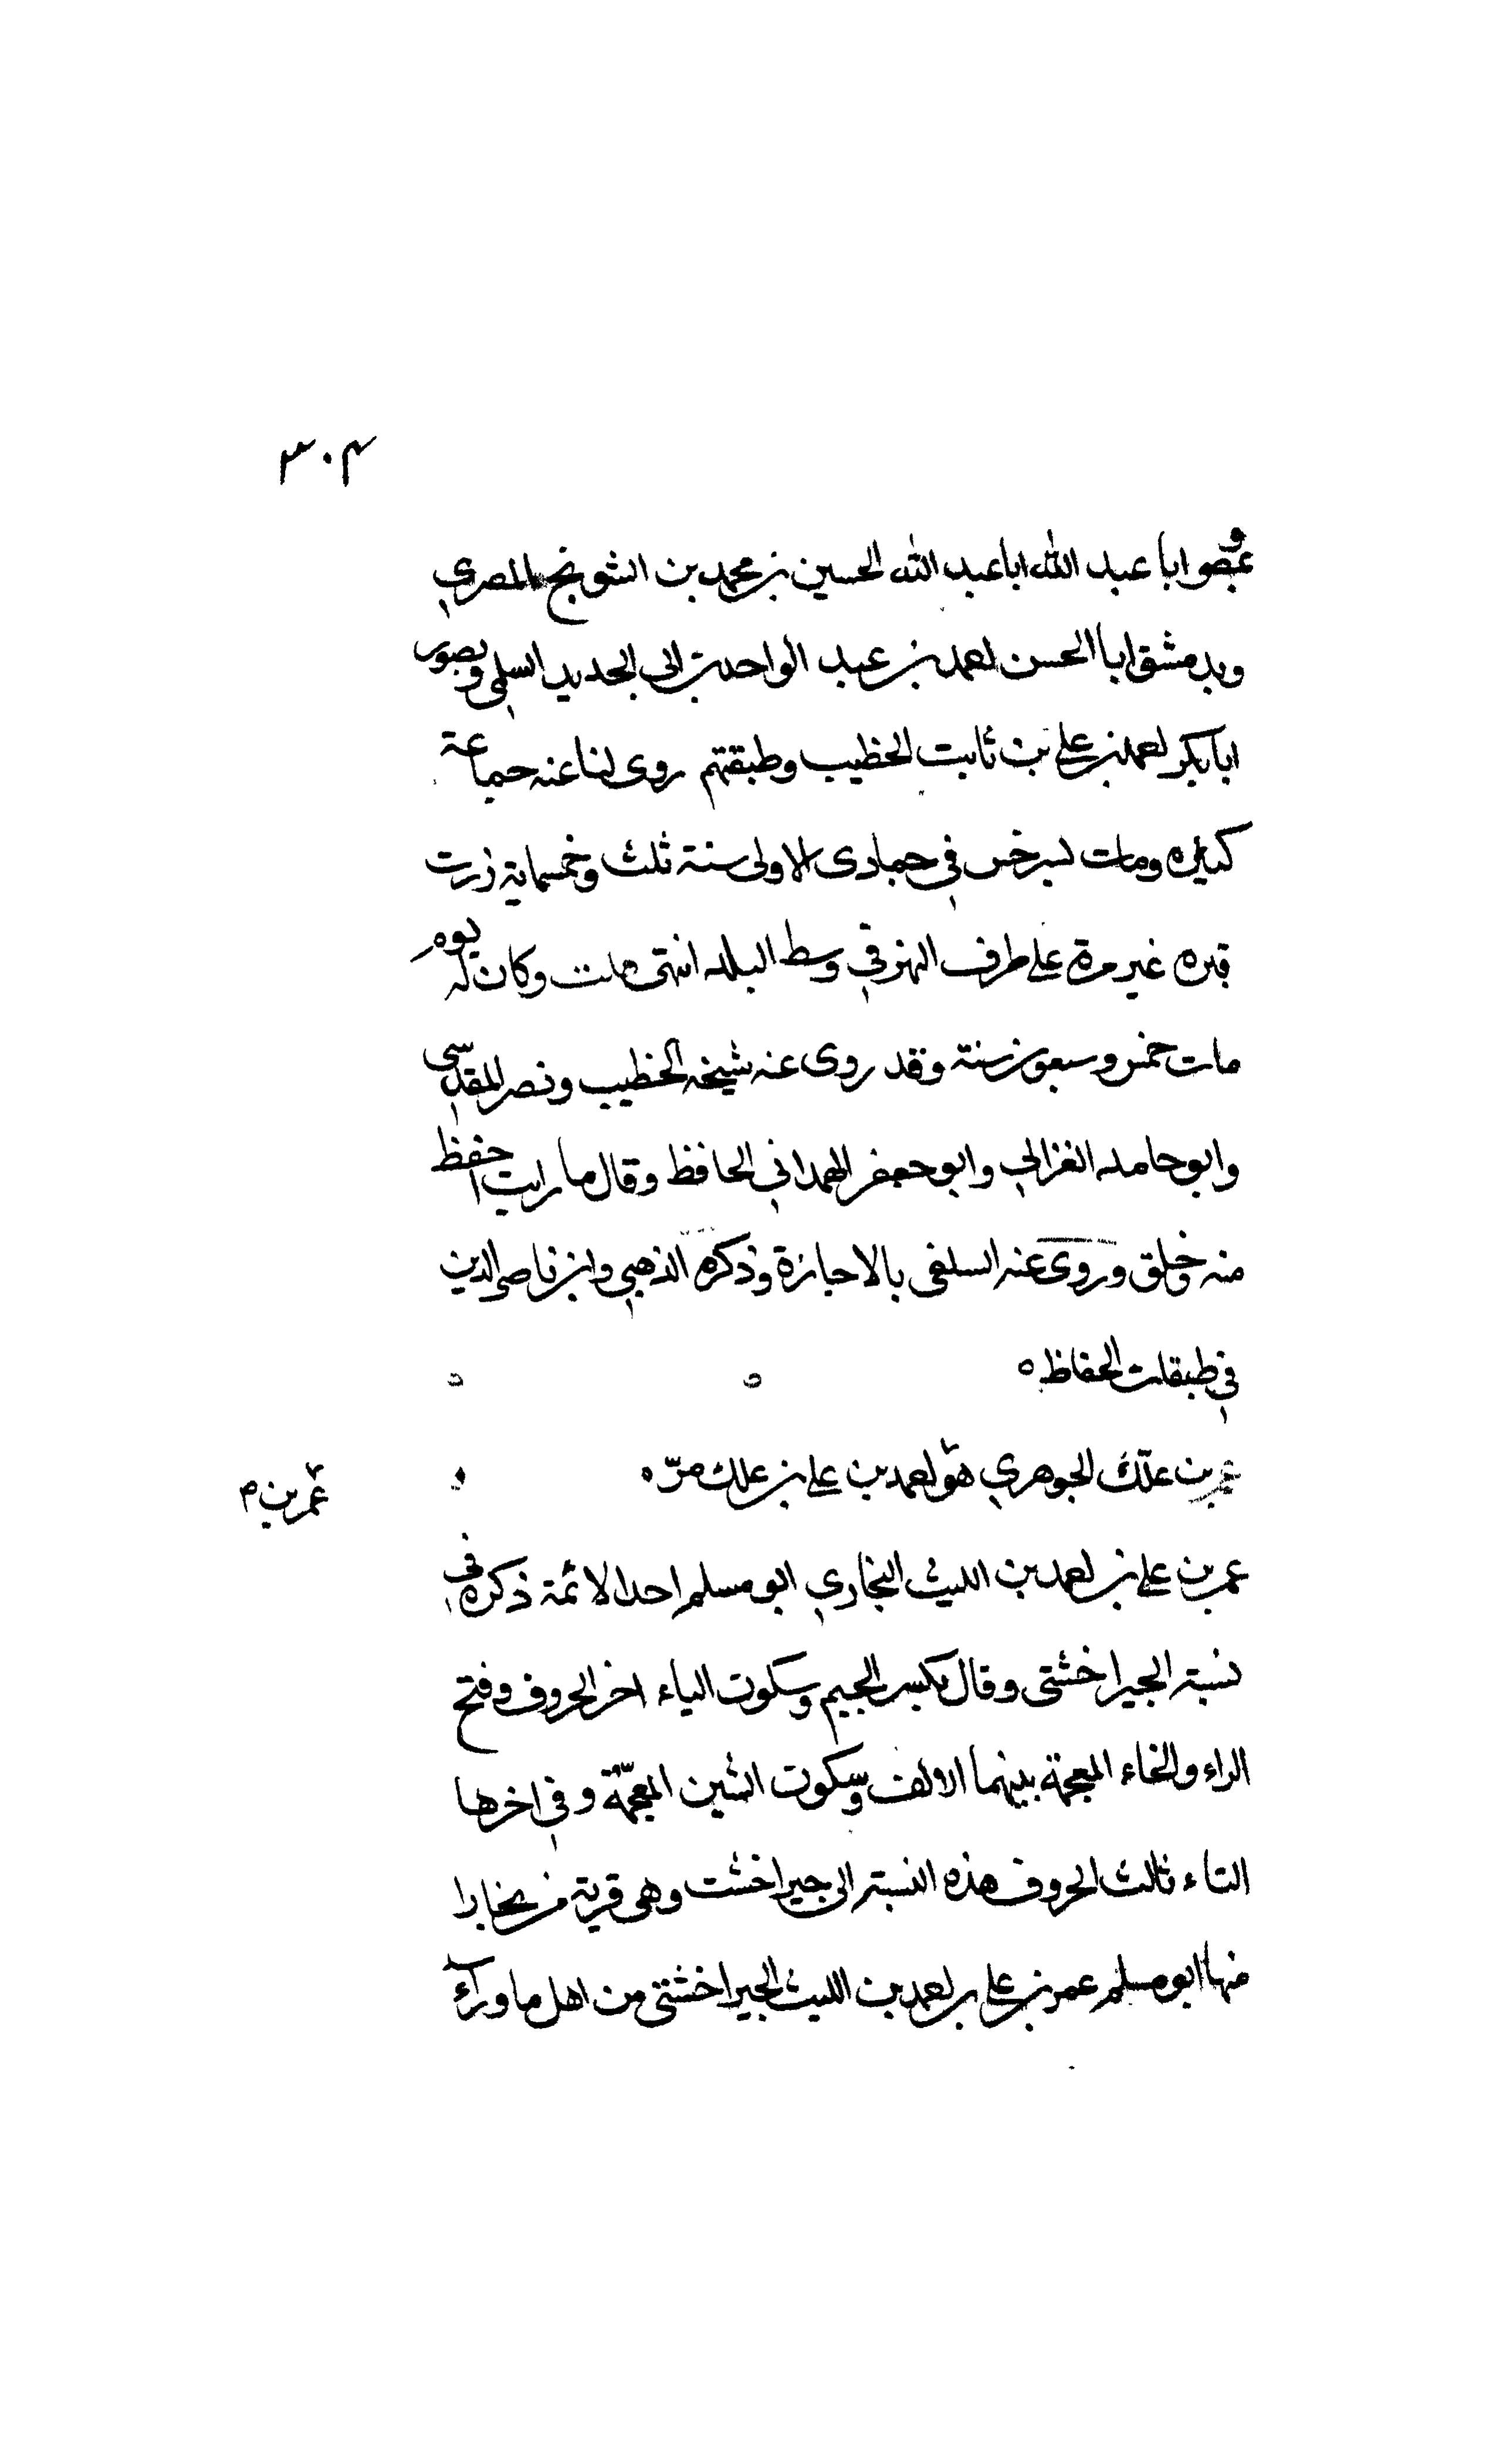 ٣٠٤
وبمصر ابا عبد الله ابا عبد الله الحسين بن محمد بن الشويخ المصري
وبدمشق ابا الحسن احمد بن عبد الواحد بن ابي الحديد السلمي وبصور
ابا بكر احمد بن علي بن ثابت الخطيب وطبقتهم روى لنا عنه جماعة
كثيرة ومات بسرخس في جمادى الاولى سنة ثلث وخمسماية زرت
قبره غير مرة على طرف النهر في وسط البلد انتهى قلت وكان له يوم
مات خمس وسبعون سنة وقد روى عنه شيخه الخطيب ونصر المقدسي
وابو حامد الغزالي وابو جعفر الهمداني الحافظ وقال ما رايت احفظ
منه وخلق وروى عنه السلفي بالاجازة وذكره الذهبي وابن ناصر الدين
في طبقات الحفاظ ه
عمر بن علك الجوهري هو احمد بن علي بن علك مرّ ه
عمر بن م
عمر بن علي بن احمد بن الليث البخاري ابو مسلم احد الائمة ذكره في
نسبة الجيراخشتى وقال بكسر الجيم وسكون الياء اخر الحروف وفتح
الراء والخاء المعجمة بينهما الالف وسكون الشين المعجمة وفي اخرها
التاء ثالث الحروف هذه النسبة الى جيراخشت وهى قرية من بخارا
منها ابو مسلم عمر بن علي بن احمد بن الليث الجيراخشتى من اهل ما وراء